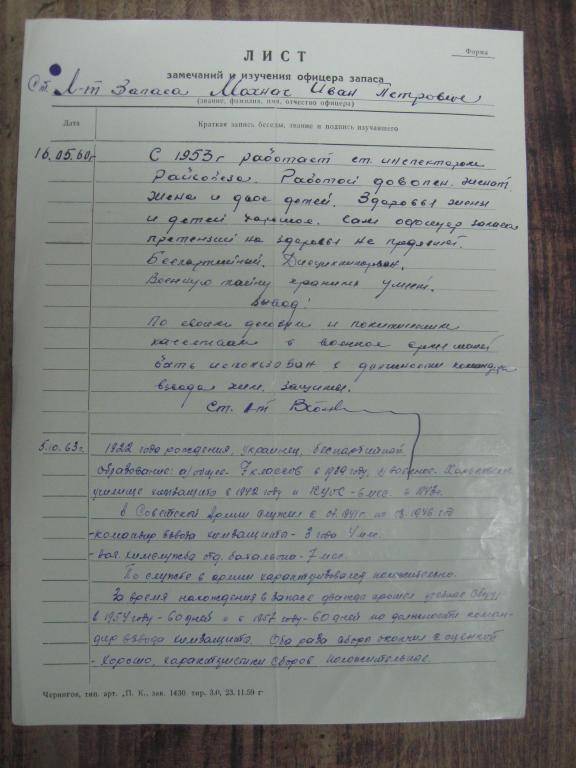 Форма
ЛИСТ
замечаний и изучения офицера запаса
Ст. Л-т Запаса Махнас Иван Петрович
(звание, фамилия, имя, отчество офицера)
Дата Краткая запись беседы, звание и подпись изучавшего
16.05.60г С 1953г работает ст. инспектором
Райсобеза. Работой доволен. Женат.
Жена и двое детей. Здоровье жены
и детей хорошое. Сам офицер запаса
претензий на здоровье не предъявляет.
Беспартийный. Дисциплинирован.
Военную тайну хранить умеет.
Вывод:
По своим деловым и политическим
качествам в военное время может
быть использован в должности командира
взвода хим. защиты.
Ст. л-т
5.10.63г. 1922 года рождения, украинец, беспартийный
образование: а) общее - 7 классов в 1939 году, военное -
училище химзащиты в 1942 году и КУОС - 6 мес. в
в Советской Армии служил с 1941г. по 1946 год
- командир взвода химзащиты - 3 года 4 мес.
- нач. химслужбы отд. батальона - 7 мес.
По службе в армии характеризовался положительно.
За время нахождения в запасе дважды прошел учебные сборы
в 1954 году - 60 дней и в 1957 - 60 дней по должности коман-
дир взвода химзащиты. Оба раза сборы окончил с оценкой
- хорошо, характеристики сборов положительные.
Чернигов, тип. арт. „П. К., зак. 1430 тир. 3,0, 23.11.59 г